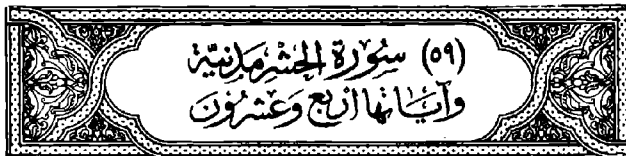 (٥٩) سُورَةُ الحَشْرِ مَدَنِيَّة
وَآيَاتُهَا أَرْبَع وَعِشْرُونَ